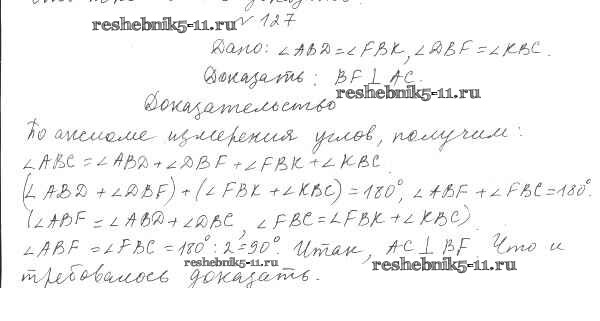 reshebnik5-11.ru № 127
Дано: ∠ABD = ∠FBK, ∠DBF = ∠KBC.
Доказать: BF ⊥ AC.
reshebnik5-11.ru
Доказательство
По аксиоме измерения углов, получим:
∠ABC = ∠ABD + ∠DBF + ∠FBK + ∠KBC
(∠ABD + ∠DBF) + (∠FBK + ∠KBC) = 180°, ∠ABF + ∠FBC = 180°.
(∠ABF = ∠ABD + ∠DBC, ∠FBC = ∠FBK + ∠KBC).
∠ABF = ∠FBC = 180° : 2 = 90°. Итак, AC ⊥ BF Что и
reshebnik5-11.ru reshebnik5-11.ru
требовалось доказать.